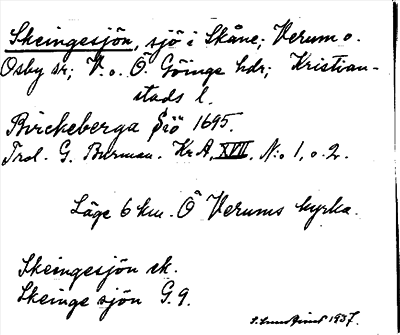 Skeingesjön, sjö i Skåne; Verum o.
Osby sr; V. o. Ö. Göinge hdr; Kristian-
stads l.
Birckeberga Siö 1695.
Trol. G. Burman. Kr. A. XVII. N:o 1, o. 2.
Läge 6 km. Ö Verums kyrka.
Skeingesjön ek.
Skeinge sjön G. 9.
1937.